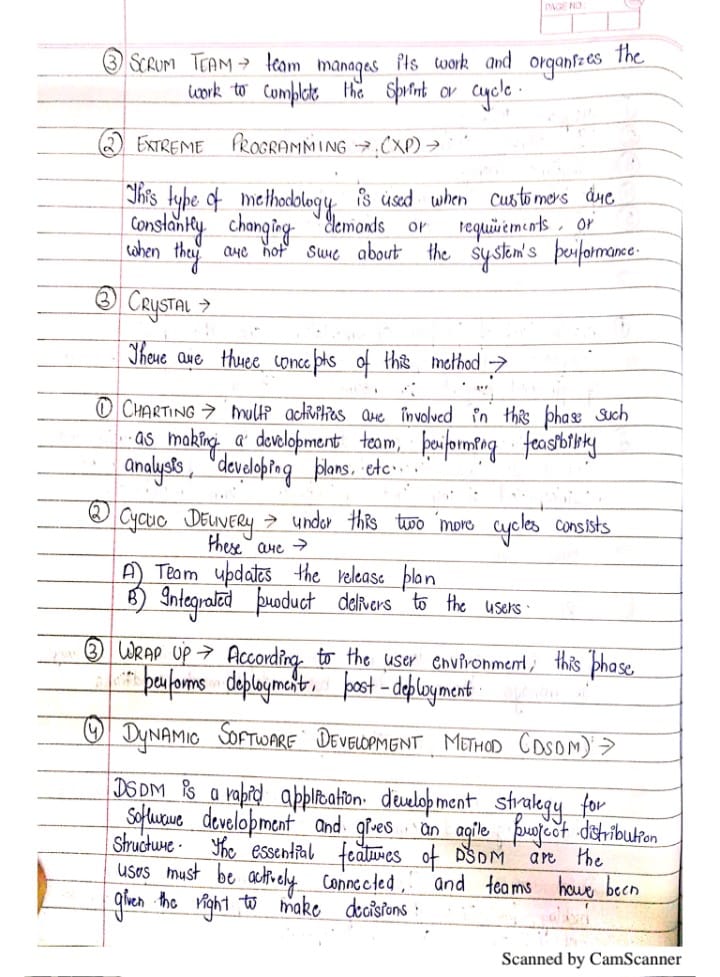 PAGE NO.
③ SCRUM TEAM → team manages its work and organizes the
work to complete the sprint or cycle.
② EXTREME PROGRAMMING → (XP) →
This type of methodology is used when customers are
constantly changing demands or requirements, or
when they are not sure about the system's performance.
③ CRYSTAL →
There are three concepts of this method →
① CHARTING → multi activities are involved in this phase such
as making a development team, performing feasibility
analysis, developing plans, etc...
② CYCLIC DELIVERY → under this two more cycles consists
these are →
A) Team updates the release plan
B) Integrated product delivers to the users.
③ WRAP UP → According to the user environment, this phase
performs deployment, post-deployment.
④ DYNAMIC SOFTWARE DEVELOPMENT METHOD (DSDM) →
DSDM is a rapid application development strategy for
software development and gives an agile project distribution
structure. The essential features of DSDM are the
uses must be actively connected, and teams have been
given the right to make decisions.
Scanned by CamScanner